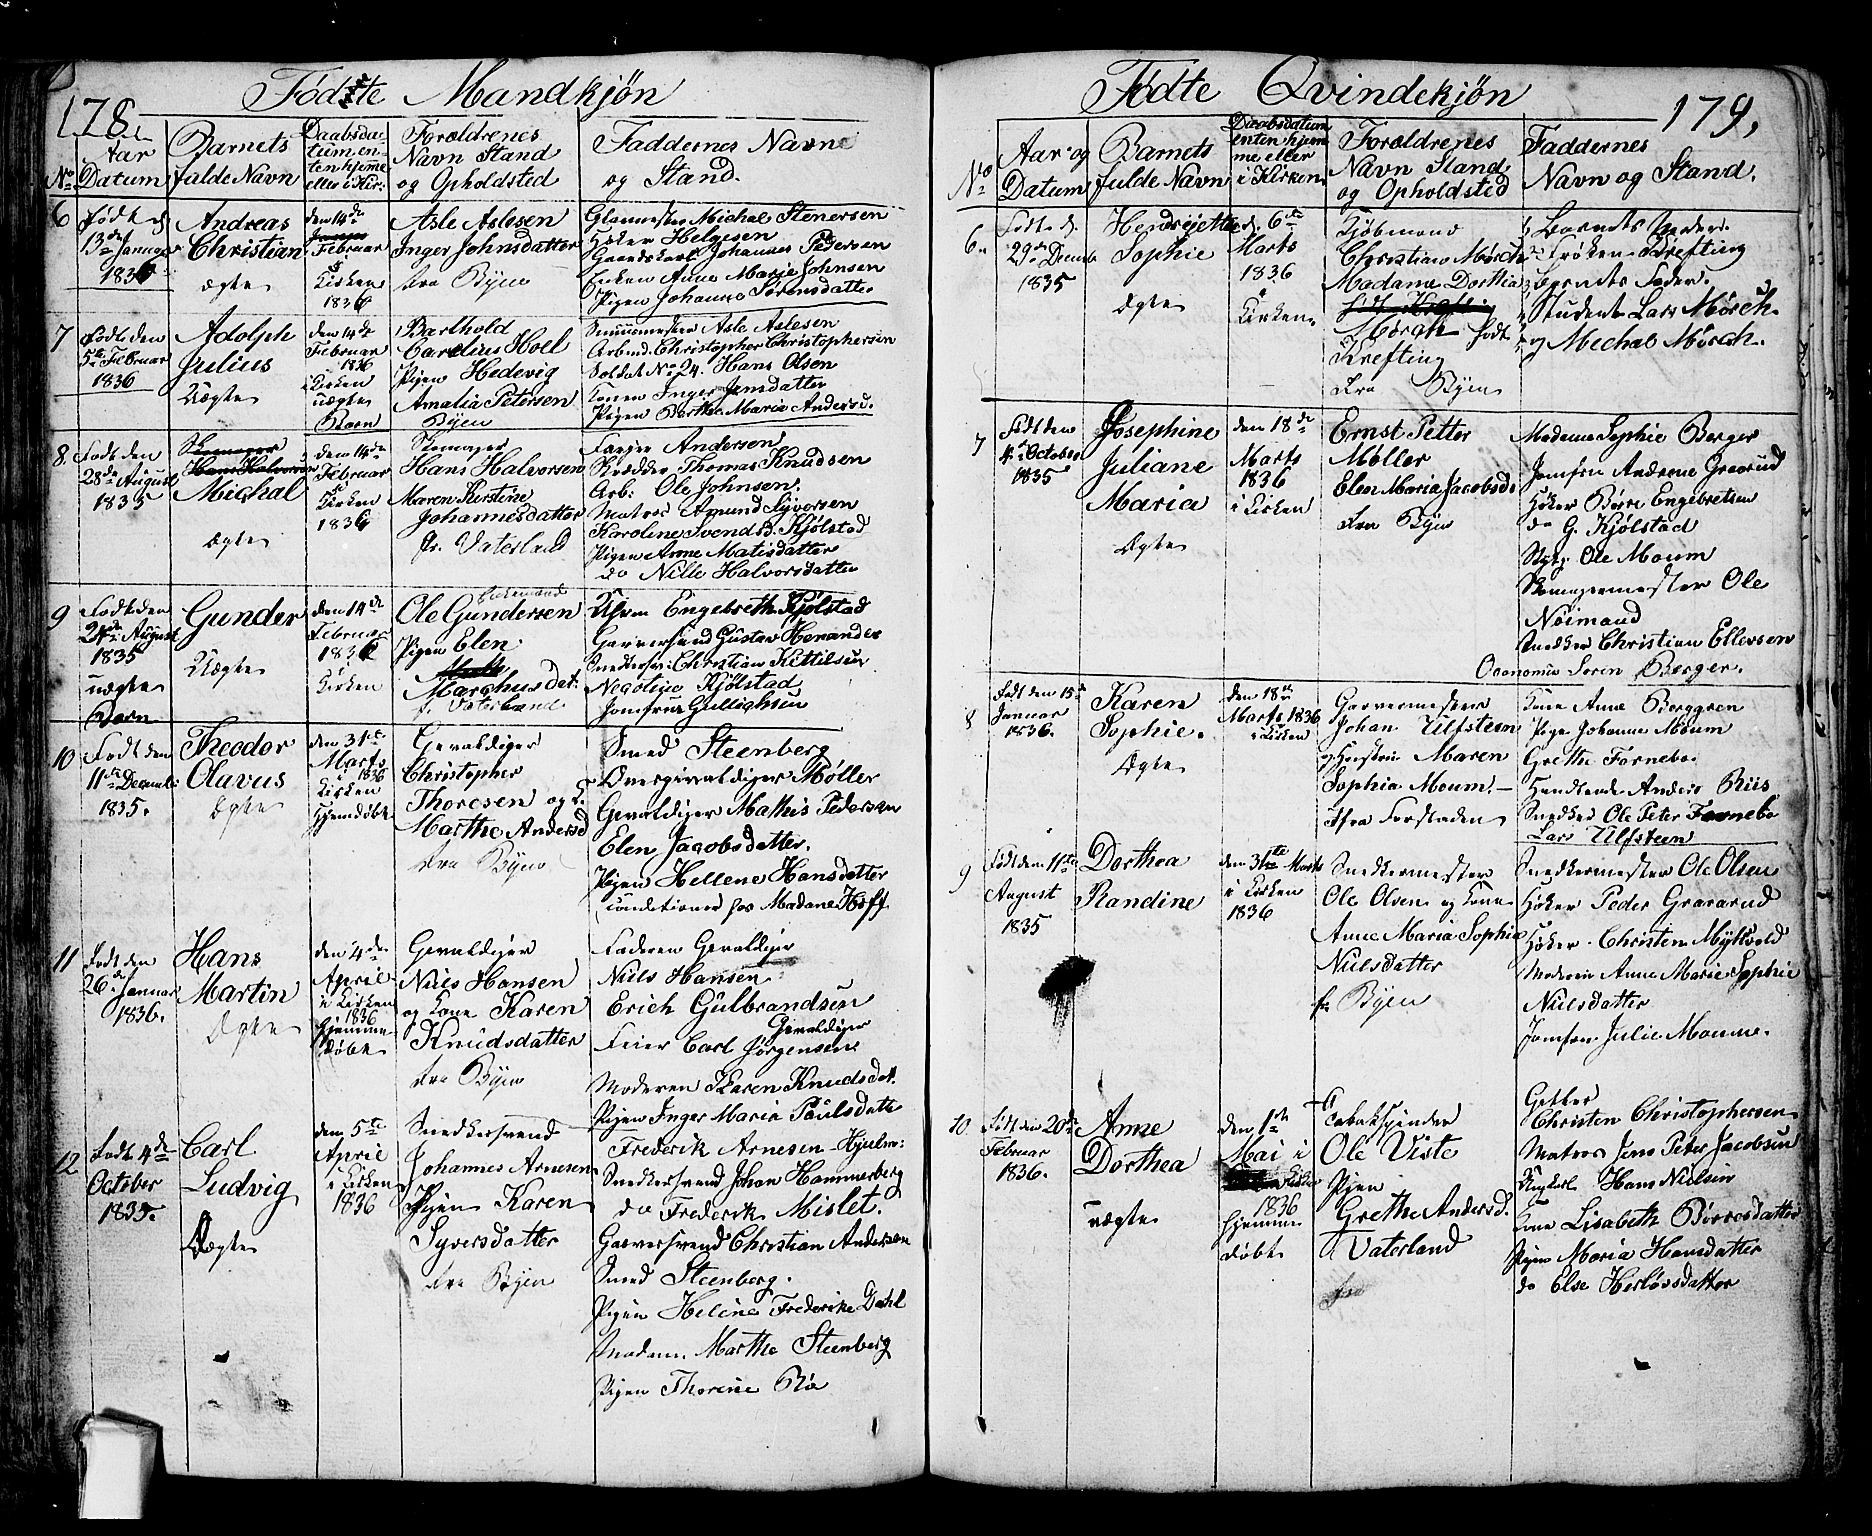 178.
Fødte Mandkjøn
No
Aar
Datum
Barnets
fulde Navn
Daabsda-
tum en-
ten hjemme
eller i Kir:
Forældrenes
Navn Stand
og Opholdsted
Faddernes Navn
og Stand.
6
Født d.
13de Januar
1836
Andreas
Christian
ægte
den 14de
Februar
i
Kirken
1836
Asle Aslesen
Inger Johnsdatter
fra Byen
Glasmester Michal Stenersen
Høker Helgesen
Gaardskarl Johannes Pedersen
Enken Anne Marie Johnsen
Pigen Johanne Sørensdatter
7
Født den
5te Februar
1836
Adolph
Julius
Uægte
den 14de
Februar
1836
i Kirken
uægte
Barn
Barthold
Carelius Hoel
Pigen Hedevig
Amalia Petersen
Byen
Asle Aslesen
Arbmd. Christopher Christophersen
Soldat No 24. Hans Olsen
Konen Inger Jensdatter
Pigen Berthe Maria Andersd.
8.
Født den
28de August
1835
Hans Halvorsen
Michal
ægte
den 14de
Februar
i
Kirken
1836
Hans Halvorsen
Maren Kirstine
Johannesdatter
fr. Vaterland
Andersen
Skrædder Thomas Knudsen
Arb: Ole Johnsen.
Matros Amund Syversen
Karoline Svendsd. Kjølstad
Pigen Anne Matisdatter
do Nille Halvorsdatter
9
Født den
24de August
1835
uægte
Barn
Gunder
Uægte
den 14de
Februar
1836
i
Kirken
Ole Gundersen
Pigen Elen
Marthe
Marchusdat.
f. Vaterland
Engebreth Kjølstad
Garversvend Gustav Henander
Snedkersv: Christian Kittilsen
Negoline Kjølstad
Jomfrue Gullichsen
10
Født den
11te Decemb:
1835.
Theodor
Olavus
ægte
den 31te
Marts
i 1836
Kirken
hjemdøbt
Gevaldiger
Christopher
Thoresen og K.
Marthe Andersd
fra Byen
Smed Steenberg
Overgevaldiger Møller
Gevaldiger Mathis Pedersen
Elen Jacobsdatter.
Pigen Hellene Hansdatter
conditioner hos Madame Hoff
11
Født den
26de Januar
1836.
Hans
Martin
Ægte
den 4de
April
i Kirken
1836
hjemme
døbt
Gevaldiger
Niels Hansen
og Kone Karen
Knudsdatter
fra Byen
Faderen Gevaldiger
Niels Hansen
Erich Gulbrandsen
Gevaldiger
Feier Carl Jørgensen
Moderen Karen Knudsdat.
Pigen Inger Maria Paulsdatte
12
Født 4de
October
1835.
Carl
Ludvig
Uægte
den 5te
April
i Kirken
1836
Snedkersvend
Johannes Arnesen
Pigen Karen
Syversdatter
fra Byen
Frederik Arnesen Hjulm:
Snedkersvend Johan Hammerberg
do Frederik Mislet.
Garversvend Christian Andersen
Smed Steenberg.
Pigen Heline Frederike Dahl
Madam. Marthe Steenberg
Pigen Thorine Roe
179.
Fødte Qvindekjøn
No
Aar og
Datum
Barnets
fulde Navn
Daabsdatum
enten hjem-
me eller
i Kirken
Forældrenes
Navn Stand
og Opholdsted
Faddernes
Navn og Stand.
6.
Født d.
29de Decemb
1835
Hendrijette
Sophie
ægte
d. 6te
Marts
1836
i
Kirken.
Kjøbmand
Christian Mørch
Madame Dorthia
født Krefting
Mørch født
Krefting
fra Byen
Barnets Moder
Frøken Krefting
Barnets Fader.
Student Lars Mørch
og Mechal Mørch.
7
Født den
4de October
1835
Josephine
Juliane
Maria
Ægte
den 18de
Marts
1836
i Kirken
Ernst Petter
Møller
Elen Maria Jacobsd.
fra Byen
Madame Sophie Berger
Jomfru Andrene Gravrud
Høker Børre Engebretsen
do G. Kjølstad
Ole Moum
Skomagermester Ole
Neimand
Snedker Christian Ellevsen
Oeconomus Søren Berger.
8
Født den 15de
Januar
1836.
Karen
Sophie.
Ægte
den 18de
Marts 1836
i Kirken
Garvermester
Johan Ulfsteen
og Hustrue Maren
Sophia Moum.
fra Forstaden
Kone Anne Berggren
Pige Johanne Moum
Grethe Fornebo.
Handlende Anders Riis
Snedker Ole Peter Fornebo
Lars Ulfsteen
9
Født den 11te
August
1835
Dorthea
Randine
den 31te Marts
i Kirken
1836
Snedkermester
Ole Olsen og Kone
Anne Maria Sophia
Nielsdatter
fr Byen
Snedkermester Ole Olsen
Høker Peder Gravarud
Høker Christen Mykvold
Moderen Anne Marie Sophie
Nielsdatter
Jomfru Julie Moume.
10.
Født den 20de
Februar
1836.
Anne
Dorthea
uægte
den 1te
Mai i
Kirken
1836
hjemme
døbt
Tobakspinder
Ole Viste
Pigen
Grethe Andersd.
Vaterland
fra
Christen Christophersen
Matros Jens Peter Jacobsen
Ungkarl Hans Nielsen
Kone Lisabeth Børresdatter
Pigen Maria Hansdatter
do Else Herlovsdatter